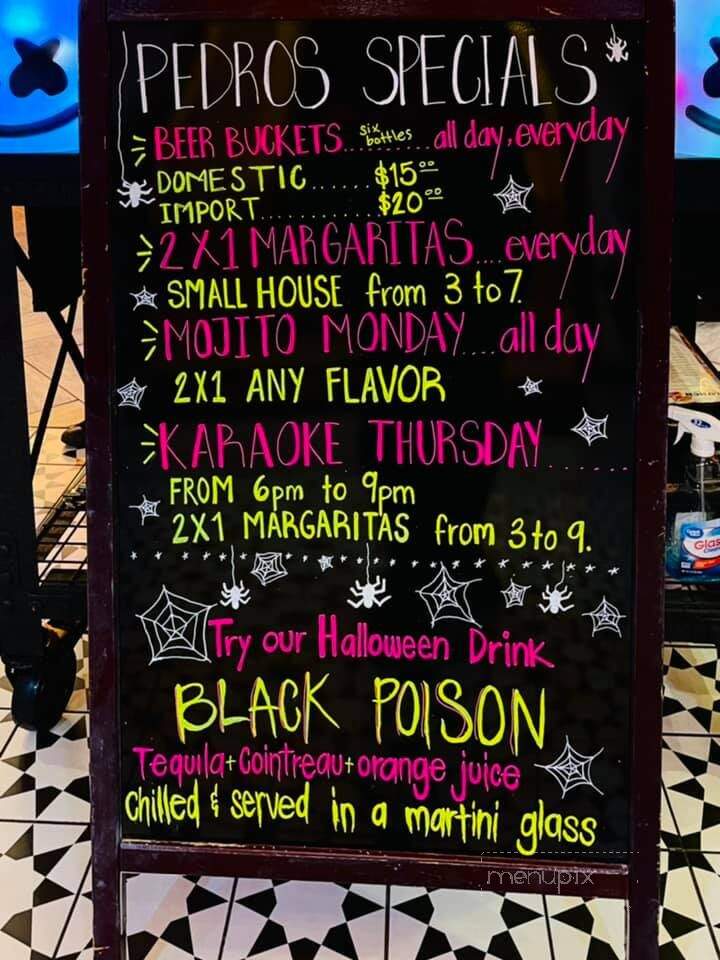 PEDROS SPECIALS
BEER BUCKETS... six bottles ... all day, everyday
DOMESTIC...... $15⁰⁰
IMPORT............ $20⁰⁰
2X1 MARGARITAS.... everyday
SMALL HOUSE from 3 to 7.
MOJITO MONDAY.... all day
2X1 ANY FLAVOR
KARAOKE THURSDAY......
FROM 6pm to 9pm
2X1 MARGARITAS from 3 to 9.
Try our Halloween Drink
BLACK POISON
Tequila + Cointreau + orange juice
chilled & served in a martini glass
menupix